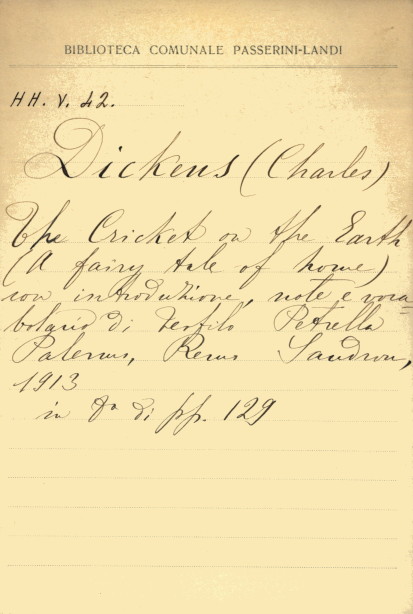 BIBLIOTECA COMUNALE PASSERINI-LANDI
HH. V. 42.
Dickens (Charles)
The Cricket on the Earth
(A fairy tale of home)
con introduzione, note e voca=
bolario di Teofilo Petrella
Palermo, Remo Sandron,
1913
in 8º di pp. 129